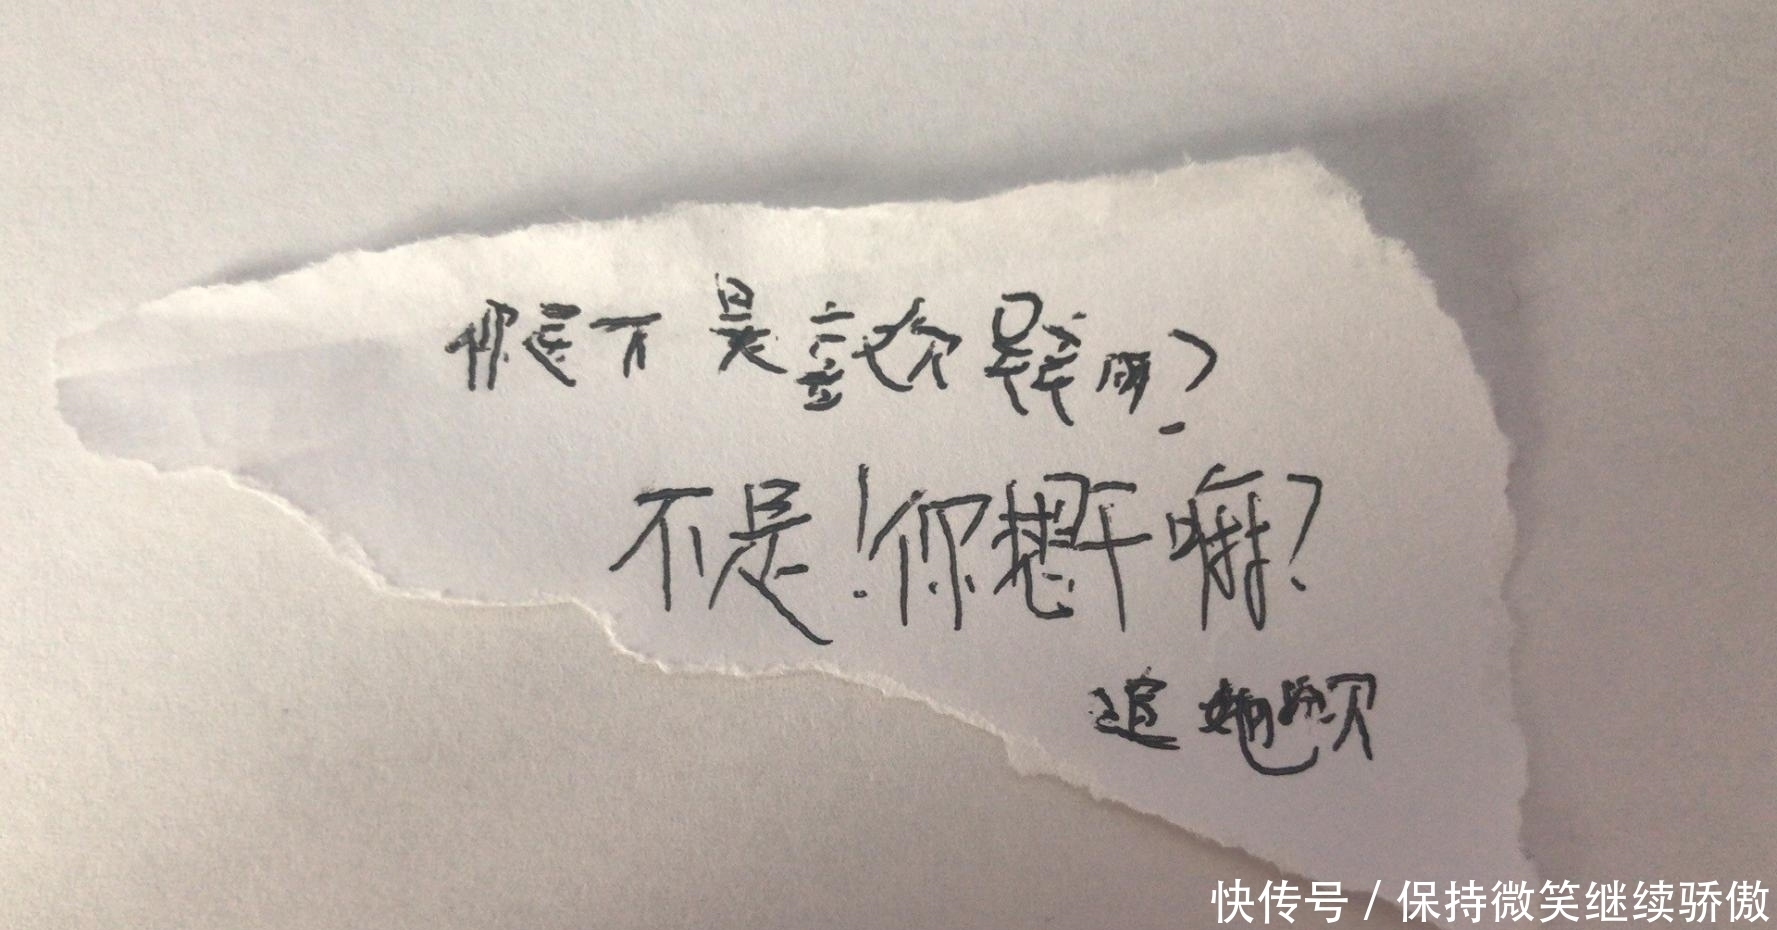 你是不是喜欢吗?
不是!你想干嘛?
追她
快传号/保持微笑继续骄傲